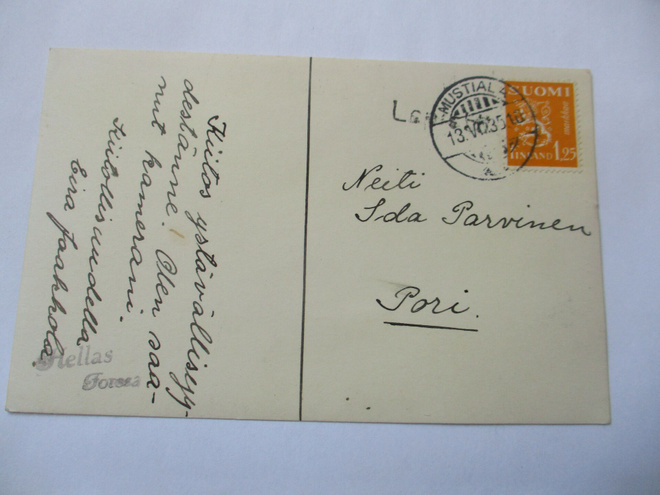 Kiitos ystävällisyy-
destänne. Olen saa-
nut kamerani.
Kiitollisuudella
Eira Jaakkola.
Hellas
Forssa
MUSTIALA
SUOMI
markkaa
FINLAND 1,25
Neiti
Ida Parvinen
Pori.